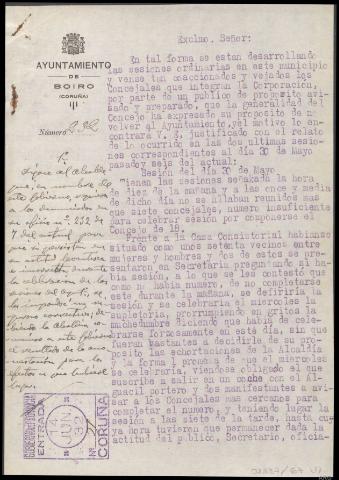 AYUNTAMIENTO
DE
BOIRO
(CORUÑA)
Número 232
Excmo. Señor:
En tal forma se estan desarrollando
las sesiones ordinarias en este municipio
y vense tan coaccionados y vejados los
Concejales que integran la Corporación,
por parte de un publico de proposito avi-
sado y preparado, que la generalidad del
Concejo ha expresado su proposito de no
volver al Ayuntamiento, el motivo lo en-
contrara V. E. justificado con el relato
de lo ocurrido en las dos ultimas sesio-
nes correspondientes al dia 30 de Mayo
pasado y seis del actual:
Sesión del dia 30 de Mayo.
Tienen las sesiones señalada la hora
de diez de la mañana y a las once y media
de dicho dia no se allaban reunidos mas
que siete concejales, número insuficiente
para celebrar sesión por componerse el
Concejo de 18.
Frente a la Casa Consistorial habianse
situado como unos setenta vecinos entre
mujeres y hombres y dos de estos se pre-
sentaron en Secretaria preguntando si ha-
bia sesión, a lo que se les contestó que
como no habia numero, de no completarse
este durante la mañana, se defiriria la
sesión y se celebraria el miercoles la
supletoria, prorrumpiendo en gritos la
muchedumbre diciendo que habia de cele-
brarse forzosamente en este dia, sin que
fueran bastantes a decidirle de su propo-
sito las echortaciones de la Alcaldia
y la forma promesa de que el miercoles
se celebraria, viendose obligado el que
suscribe a salir en un coche con el Al-
guacil portero y dos manifestantes a avi-
sar a los Concejales mas cercanos para
completar el número, y teniendo lugar la
sesión a las siete de la tarde, hasta cu-
ya hora tuvieron que permanecer dada la
actitud del publico, Secretario, oficia-
Dígase al Alcalde
que, en nombre de
este Gobierno,
su oficio nº 232 de
7 del actual, para
que si persisten en
su actitud
durante
la celebración de las
sesiones del Aytº, se
les impondrá
ENTRADA
14 JUN. 32
Nº
CORUÑA